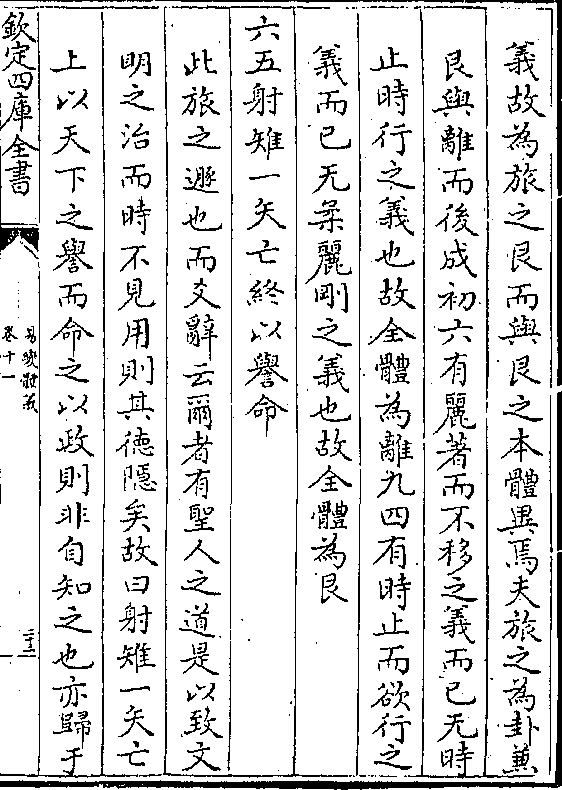 義故為旅之艮而與艮之本體異焉夫旅之為卦兼
艮與離而後成初六有麗著而不移之義而已无時
止時行之義也故全體為離九四有時止而欲行之
義而已无柔麗剛之義也故全體為艮
六五射雉一矢亡終以譽命
此旅之遯也而爻辭云爾者有聖人之道是以致文
明之治而時不見用則其德隠矣故曰射雉一矢亡
上以天下之譽而命之以政則非自知之也亦歸于
欽定四庫全書
易變體義
卷十一